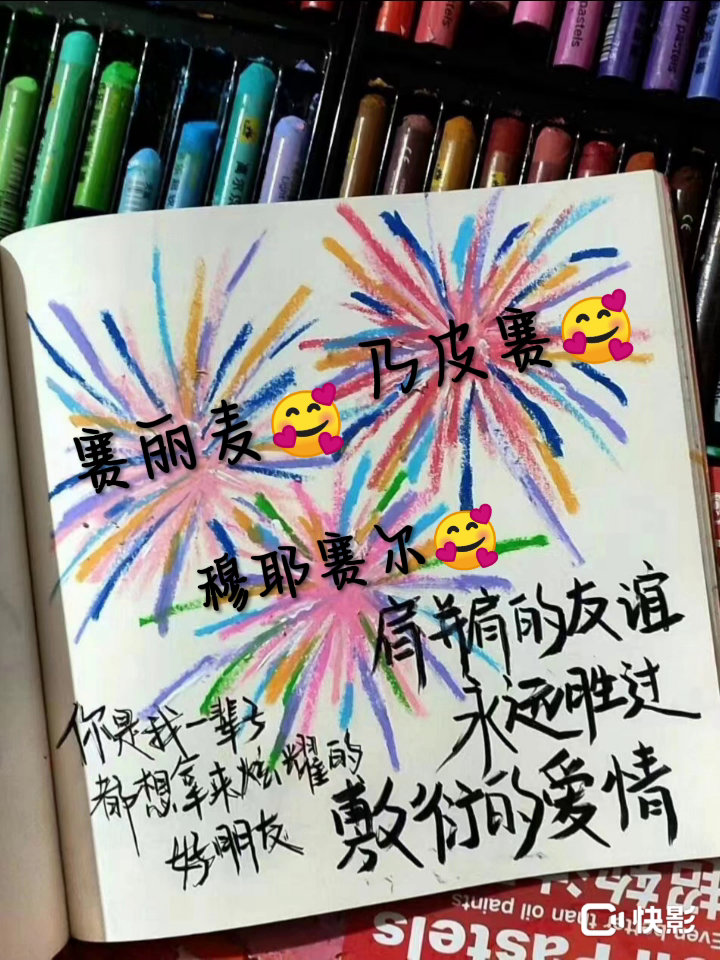 乃皮赛🥰
赛丽麦🥰
穆耶赛尔🥰
肩并肩的友谊
永远胜过
敷衍的爱情
你是我一辈子
都想拿来炫耀的
好朋友
Even better than oil paints
Oil Pastels
快影
oil pastels